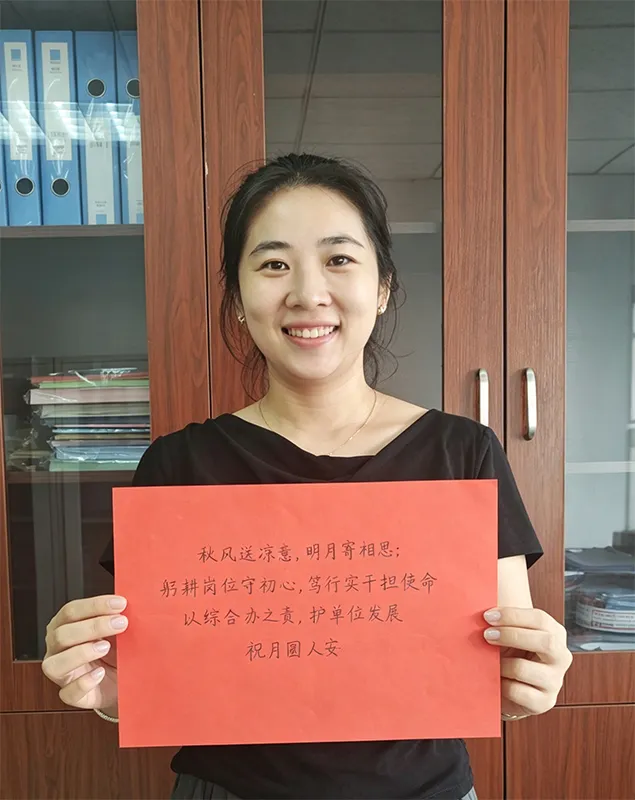 秋风送凉意，明月寄相思；
躬耕岗位守初心，笃行实干担使命
以综合办之责，护单位发展
祝月圆人安